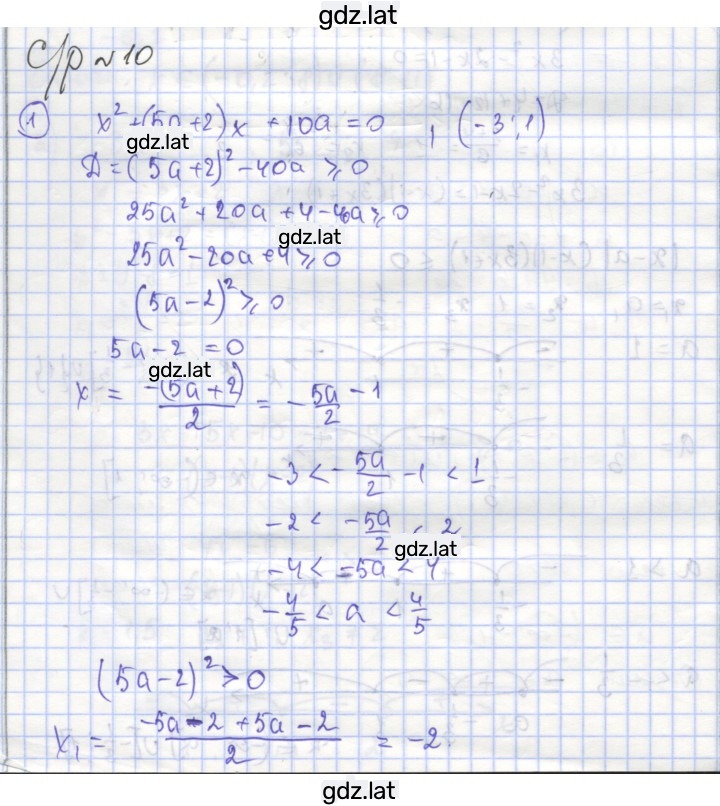 gdz.lat
С/р №10
1 x² + (5a+2)x + 10a = 0 , (-3;1)
gdz.lat
D = (5a+2)² - 40a ≥ 0
25a² + 20a + 4 - 40a ≥ 0
gdz.lat
25a² - 20a + 4 ≥ 0
(5a-2)² ≥ 0
5a - 2 = 0
gdz.lat
x = -(5a+2)/2 = - 5a/2 - 1
-3 < - 5a/2 - 1 < 1
-2 < -5a/2 < 2
gdz.lat
-4 < -5a < 4
-4/5 < a < 4/5
(5a-2)² > 0
x₁ = -5a - 2 + 5a - 2/2 = -2
gdz.lat